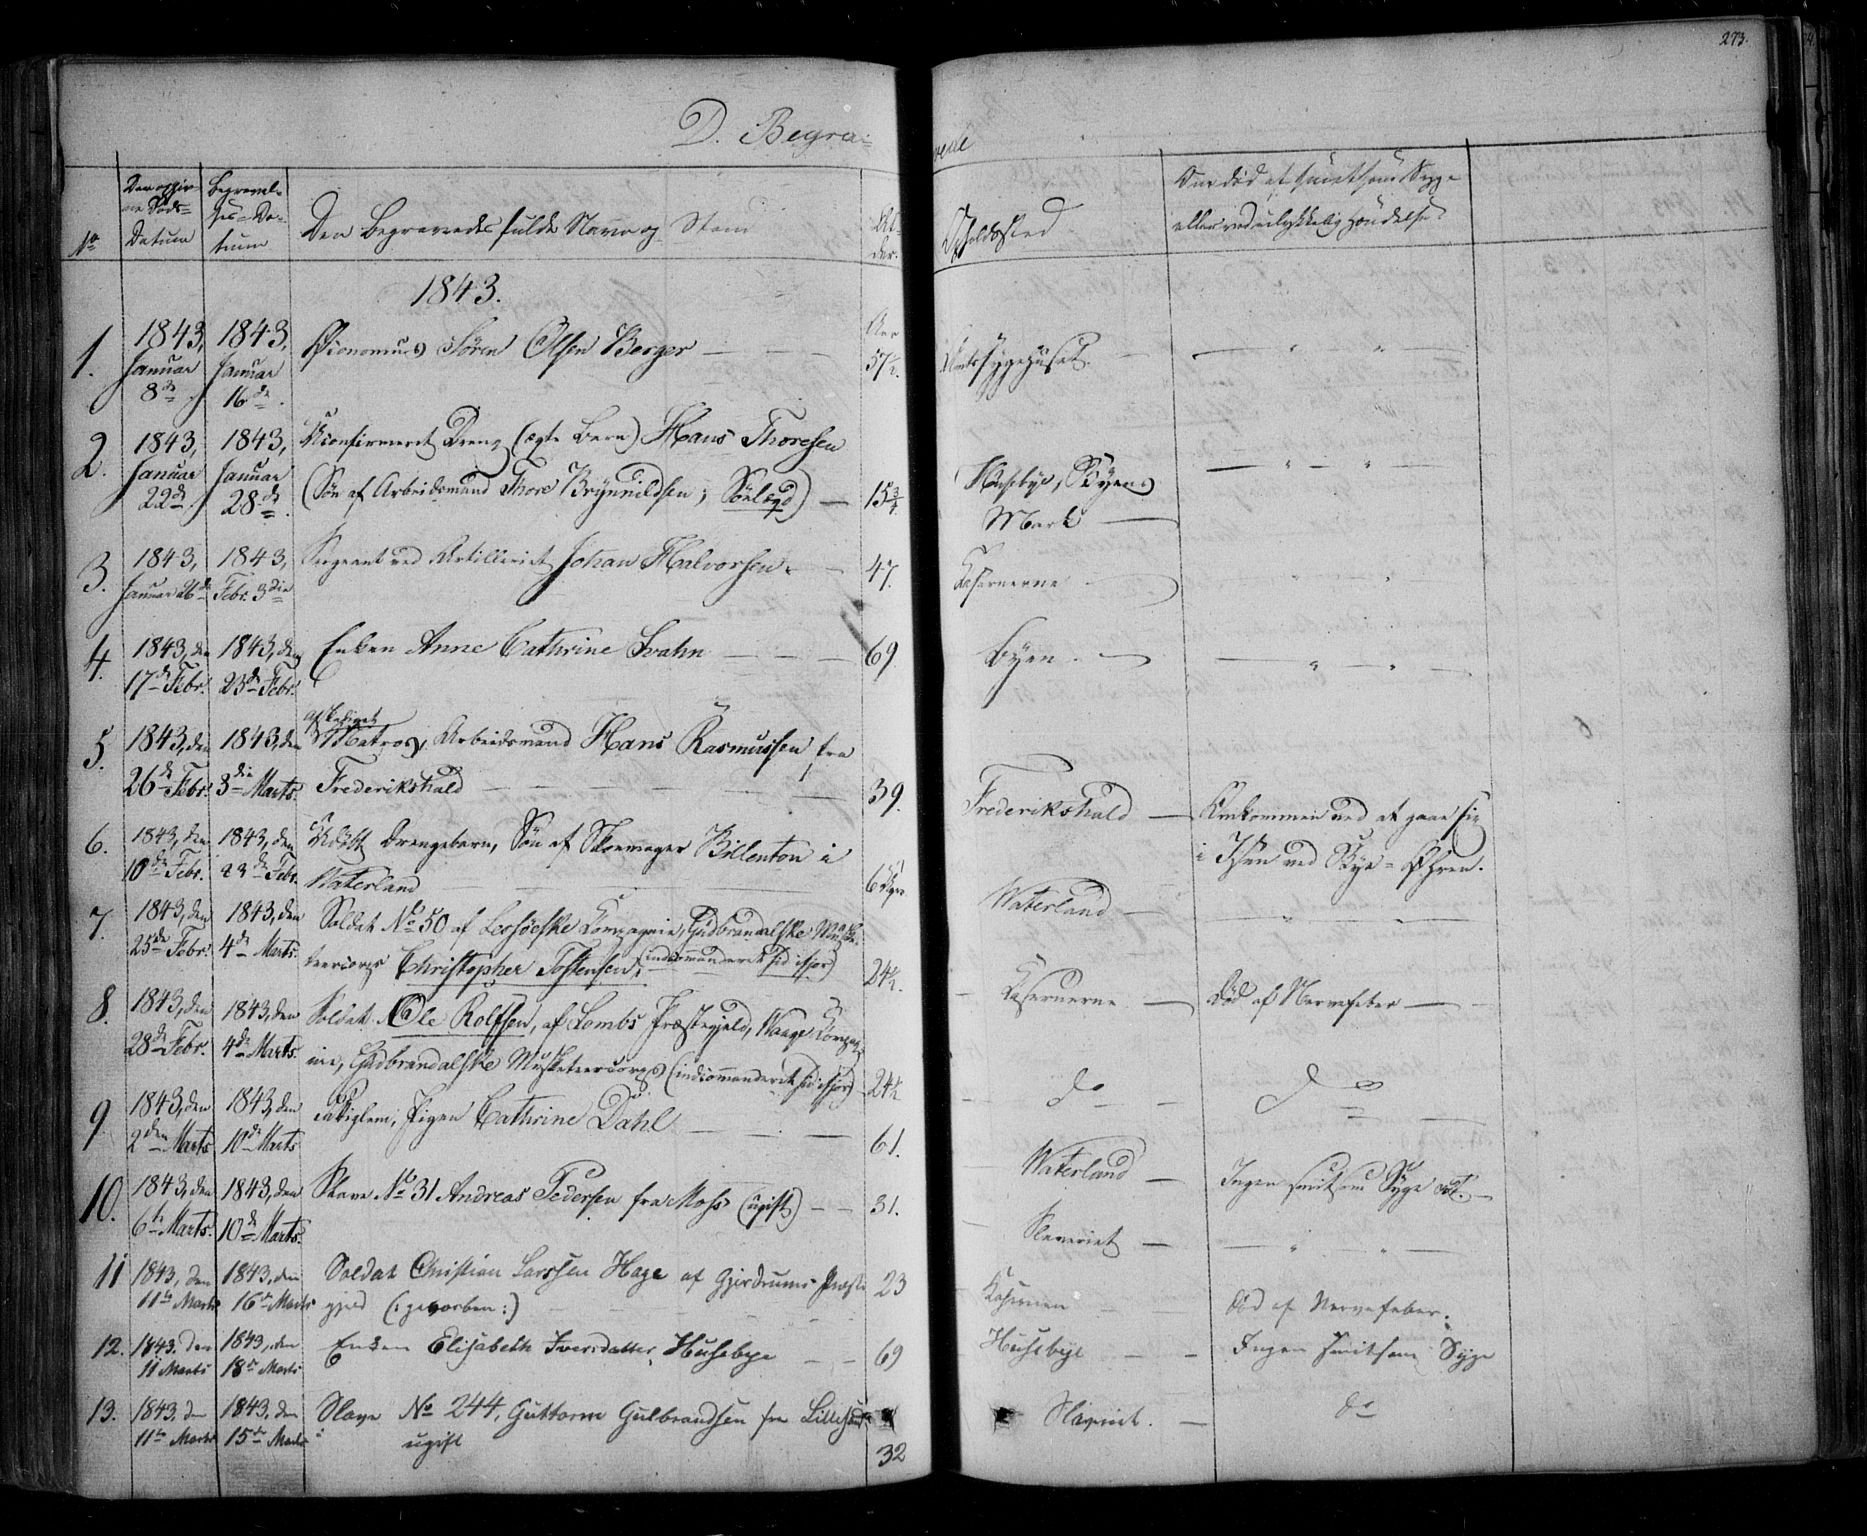 273.
D. Begravede
No
Den opgivne Døds-Datum
Begravelses-Datum
Den Begravedes fulde Navn og Stand
Alder.
Opholdssted
Om død af smitsom Syge
eller ved ulykkelig Hændelse
1843.
1. 1843, Januar 8de. 1843, Januar 16de. Oeconomus Sören Olsen Berger — Aar 57½. Amtssygehuset. — " — " —
2. 1843, Januar 22de. 1843, Januar 28de. Ukonfirmeret Dreng (ægte Barn) Hans Thoresen
(Søn af Arbeidsmand Thore Brynnildsen; Sølegd) — 15¾. Husebye, Byens
Mark — " — " —
3. 1843, Januar 26de 1843, Febr. 3die Sergeant ved Artilleriet Johan Halvorsen. — 47. Kasernerne
4. 1843, den 17de Febr. 1843, den 23de Febr. Enken Anne Cathrine Svahn — 69 Byen. — " — " —
5. 1843, den 26de Febr. 1843, den 3die Marts. afskediget
Matros, Arbeidsmand Hans Rasmussen fra
Frederikshald — 39. Frederikshald — Omkommen ved at gaae sig
i Isen ved Bye-Øhren.
6. 1843, den 10de Febr. 1843, den 23de Febr. Udøbt Drengebarn, Søn af Skomager Billenton i
Waterland — 6 Dage Waterland — " —
7. 1843, den 25de Febr. 1843, den 4de Marts. Soldat No 50 af Lessöeske Compagnie, Gudbrandalske Muske-
teercorps Christopher Tostensen. (indcommanderet hid ifjor) 24½. Kasernerne — Død af Nervefeber —
8. 1843, den 28de Febr. 1843, den 4de Marts. Soldat Ole Rolfsen, af Lombs Præstegjeld, Waage Compag-
nie, Gudbrandalske Musketeercorps (indcommanderet hid ifjor) — 24½ do — do —
9. 1843, den 2den Marts 1843, den 10de Marts Pigen Cathrine Dahl — 61. Waterland — Ingen smitsom Syge
10. 1843, den 6te Marts. 1843, den 10de Marts. Slave No 31 Andreas Pedersen fra Moss (ugift) — 31. Slaveriet — " — " —
11 1843, den 11te Marts 1843, den 16de Marts Soldat Christian Larssen Hage af Gjerdrums Præste
gjeld (: geworben :) 23 Kasernen Død af Nervefeber.
12. 1843. den 11 Marts 1843, den 18de Marts Enken Elisabeth Iversdatter, Husebye — 69 Husebye — Ingen smitsom Syge
13. 1843. den 11te Marts 1843, den 15de Marts Slave No 244, Guttorm Gulbrandsen fra Lillesand
ugift 32 Slaveriet. — do